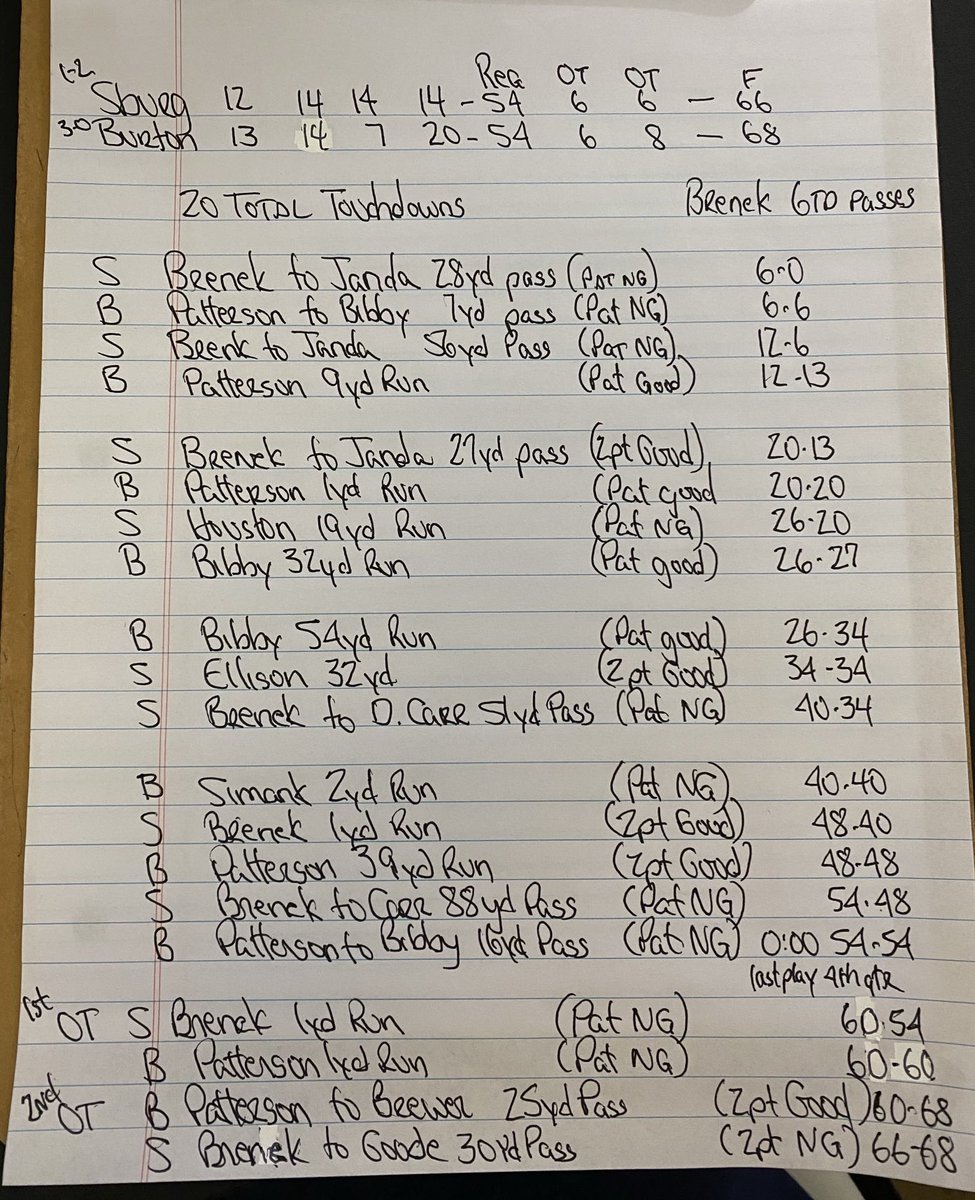 Reg OT OT F
1-2 Sburg 12 14 14 14 - 54 6 6 - 66
3-0 Burton 13 14 7 20 - 54 6 8 - 68
20 TOTAL Touchdowns Brenek 6TD Passes
S Brenek to Janda 28yd pass (PAT NG) 6-0
B Patterson to Bibby 7yd pass (Pat NG) 6-6
S Brenk to Janda 56yd Pass (Pat NG) 12-6
B Patterson 9yd Run (Pat Good) 12-13
S Brenek to Janda 27yd pass (2pt Good) 20-13
B Patterson 1yd Run (Pat good 20-20
S Houston 19yd Run (Pat NG) 26-20
B Bibby 32yd Run (Pat good) 26-27
B Bibby 54yd Run (Pat good) 26-34
S Ellison 32yd (2pt Good) 34-34
S Brenek to D. Carr 51yd Pass (Pat NG) 40-34
B Simank 2yd Run (Pat NG) 40-40
S Brenek 1yd Run (2pt Good) 48-40
B Patterson 39yd Run (2pt Good) 48-48
S Brenek to Carr 88yd Pass (Pat NG) 54-48
B Patterson to Bibby 16yd Pass (Pat NG) 0:00 54-54
last play 4th qtr
1st OT S Brenek 1yd Run (Pat NG) 60-54
B Patterson 1yd Run (Pat NG) 60-60
2nd OT B Patterson to Brewer 25yd Pass (2pt Good) 60-68
S Brenek to Goode 30yd Pass (2pt NG) 66-68